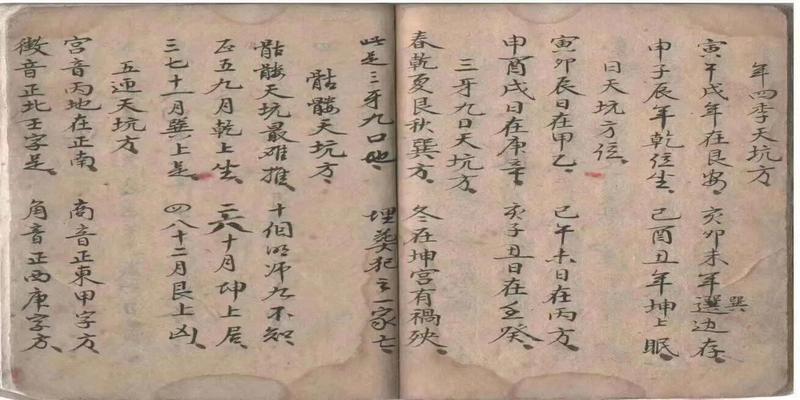 年四季天坑方
寅午戌年在艮安 亥卯未年選边存 巽
申子辰年乾位生 己酉丑年坤上眠
日天坑方位
寅卯辰日在甲乙 己午未日在丙方
申酉戌日在庚辛 亥子丑日在壬癸
三牙九日天坑方
春乾夏艮秋巽方 冬在坤宫有禍殃
此是三牙九口地 埋葬犯主一家亡
骷髏天坑方
骷髏天坑最难推 十個師九不知
正五九月乾上生 二六十月坤上居
三七十一月巽上是 四八十二月艮上凶
五逆天坑方
宫音丙地在正南 商音正東甲字方
徵音正北壬字是 角音正西庚字方